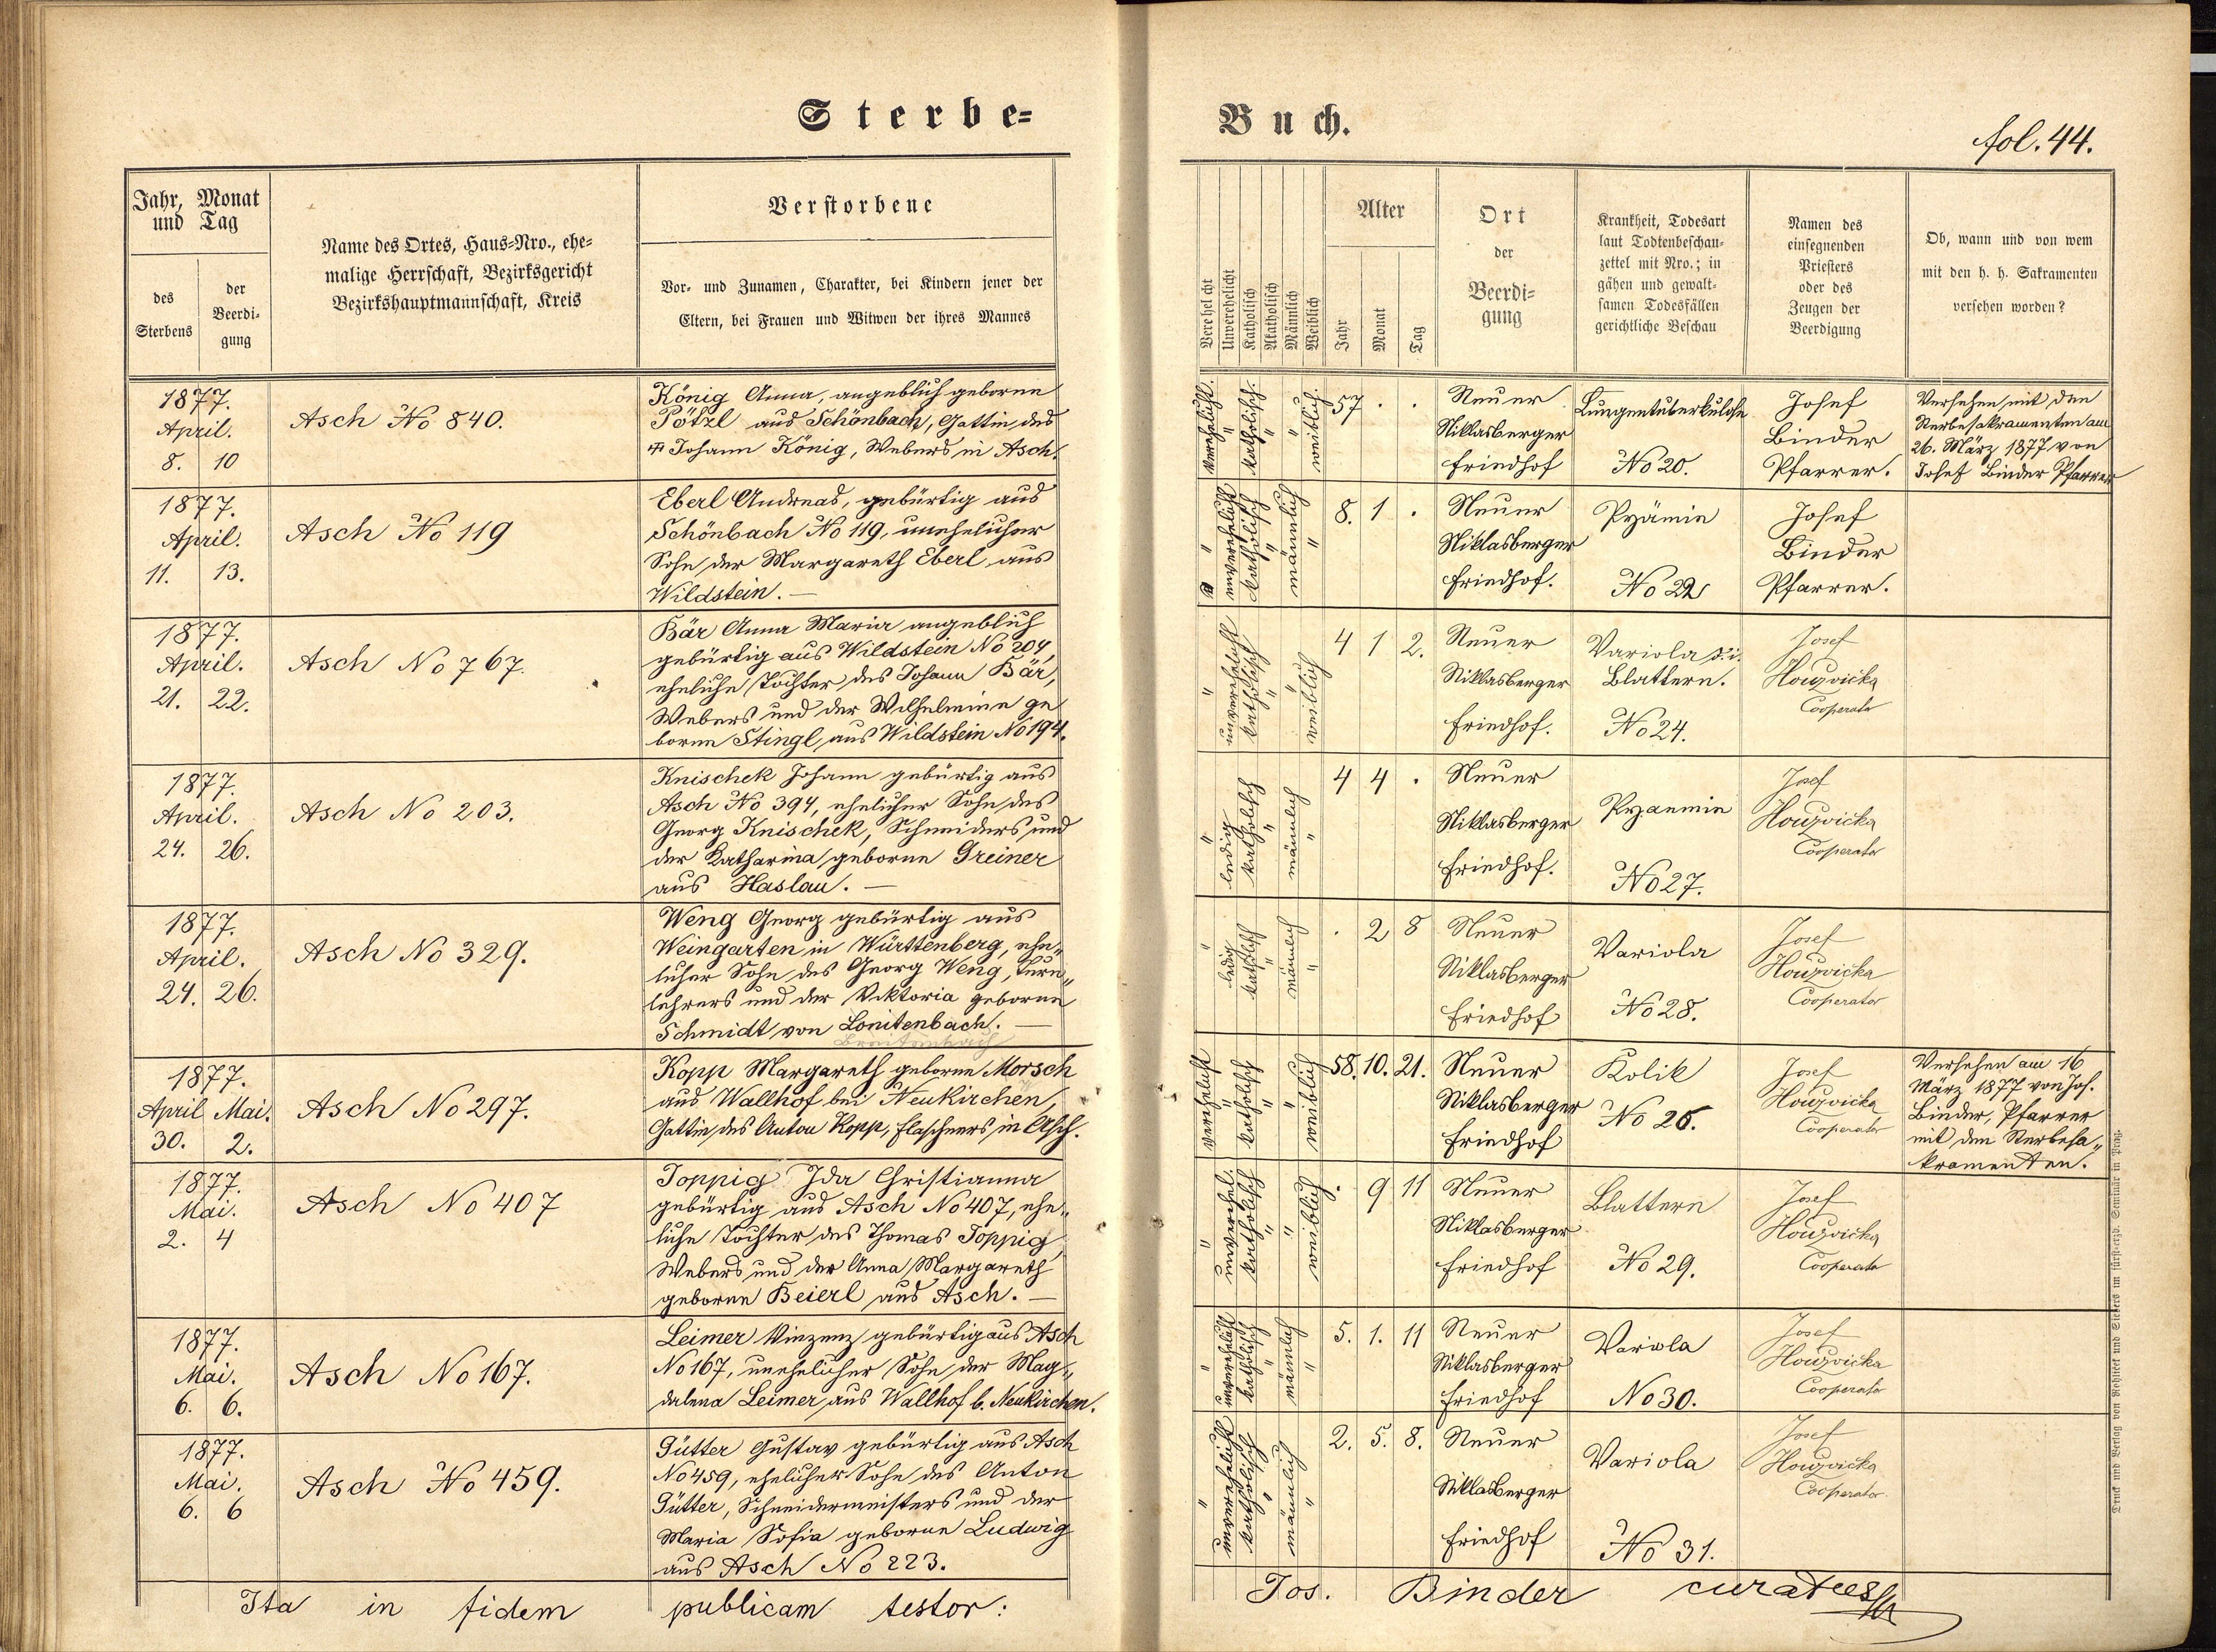 Sterbe=
Buch.
fol. 44.
Jahr, Monat
und Tag
des
Sterbens
der
Beerdi-
gung
Name des Ortes, Haus-Nro., ehe-
malige Herrschaft, Bezirksgericht
Bezirkshauptmannschaft, Kreis
Verstorbene
Vor- und Zunamen, Charakter, bei Kindern jener der
Eltern, bei Frauen und Witwen der ihres Mannes
Verehelicht
Unverehelicht
Katholisch
Akatholisch
Männlich
Weiblich
Alter
Jahr
Monat
Tag
Ort
der
Beerdi=
gung
Krankheit, Todesart
laut Todtenbeschau-
zettel mit Nro.; in
gähen und gewalt-
samen Todesfällen
gerichtliche Beschau
Namen des
einsegnenden
Priesters
oder des
Zeugen der
Beerdigung
Ob, wann und von wem
mit den h. h. Sakramenten
versehen worden?
1877.
April.
8. 10
Asch No 840.
König Anna, angeblich geborne
Pötzl aus Schönbach, Gattin des
Johann König, Webers in Asch.
verehelicht.
katholisch.
weiblich.
57 . .
Neuer
Niklasberger
Friedhof
Lungentuberkulose
No 20.
Josef
Binder
Pfarrer.
Versehen mit den
Sterbesakramenten am
26. März 1877 von
Josef Binder Pfarrer
1877.
April.
11. 13.
Asch No 119
Eberl Andreas, gebürtig aus
Schönbach No 119, unehelicher
Sohn der Margareth Eberl aus
Wildstein. —
unverehelicht
katholisch
männlich
8. 1 .
Neuer
Niklasberger
Friedhof.
Pyämie
No 22
Josef
Binder
Pfarrer.
1877.
April.
21. 22.
Asch No 767.
Bär Anna Maria angeblich
gebürtig aus Wildstein No 204,
eheliche Tochter des Johann Bär,
Webers und der Wilhelmine ge
borne Stingl, aus Wildstein No 194.
unverehelicht
katholisch
weiblich
4 1 2.
Neuer
Niklasberger
Friedhof.
Variola
Blattern.
No 24.
Josef
Houzvicka
Cooperator
1877.
April.
24. 26.
Asch No 203.
Knischek Johann gebürtig aus
Asch No 394, ehelicher Sohn des
Georg Knischek, Schneiders und
der Katharina geborne Greiner
aus Haslau. —
ledig
katholisch
männlich
4 4 .
Neuer
Niklasberger
Friedhof.
Pyaemie
No 27.
Josef
Houzvicka
Cooperator
1877.
April.
24. 26.
Asch No 329.
Weng Georg gebürtig aus
Weingarten in Württenberg, ehe„
licher Sohn des Georg Weng, Turn„
lehrers und der Viktoria geborne
Schmidt von Lonitenbach. —
ledig
katholisch
männlich
. 2 8
Neuer
Niklasberger
Friedhof
Variola
No 28.
Josef
Houzvicka
Cooperator
1877.
April Mai.
30. 2.
Asch No 297.
Kopp Margareth geborne Morsch
aus Wallhof bei Neukirchen,
Gattin des Anton Kopp, Flaschners in Asch.
verehelicht
katholisch
weiblich
58. 10. 21.
Neuer
Niklasberger
Friedhof
Kolik
No 26.
Josef
Houzvicka
Cooperator
Versehen am 16
März 1877 von Jos.
Binder, Pfarrer
mit den Sterbesa„
kramenten.
1877.
Mai.
2. 4
Asch No 407
Toppig Ida Christianna
gebürtig aus Asch No 407, ehe„
liche Tochter des Thomas Toppig
Webers und der Anna Margareth
geborne Beierl aus Asch. —
unverehel.
katholisch
weiblich
. 9 11
Neuer
Niklasberger
Friedhof
Blattern
No 29.
Josef
Houzvicka
Cooperator
1877.
Mai.
6. 6.
Asch No 167.
Leimer Vinzenz gebürtig aus Asch
No 167, unehelicher Sohn der Mag„
dalena Leimer aus Wallhof b. Neukirchen.
unverehelicht
katholisch
männlich
5. 1. 11
Neuer
Niklasberger
Friedhof
Variola
No 30.
Josef
Houzvicka
Cooperator
1877.
Mai.
6. 6
Asch No 459.
Gütter Gustav gebürtig aus Asch
No 459, ehelicher Sohn des Anton
Gütter, Schneidermeisters und der
Maria Sofia geborne Ludwig
aus Asch No 223.
unverehelicht
katholisch
männlich
2. 5. 8.
Neuer
Niklasberger
Friedhof
Variola
No 31.
Josef
Houzvicka
Cooperator
Ita in fidem publicam testor:
Jos. Binder curatus
Druck und Verlag von Rohliček und Sievers im fürst-erzb. Seminar in Prag.